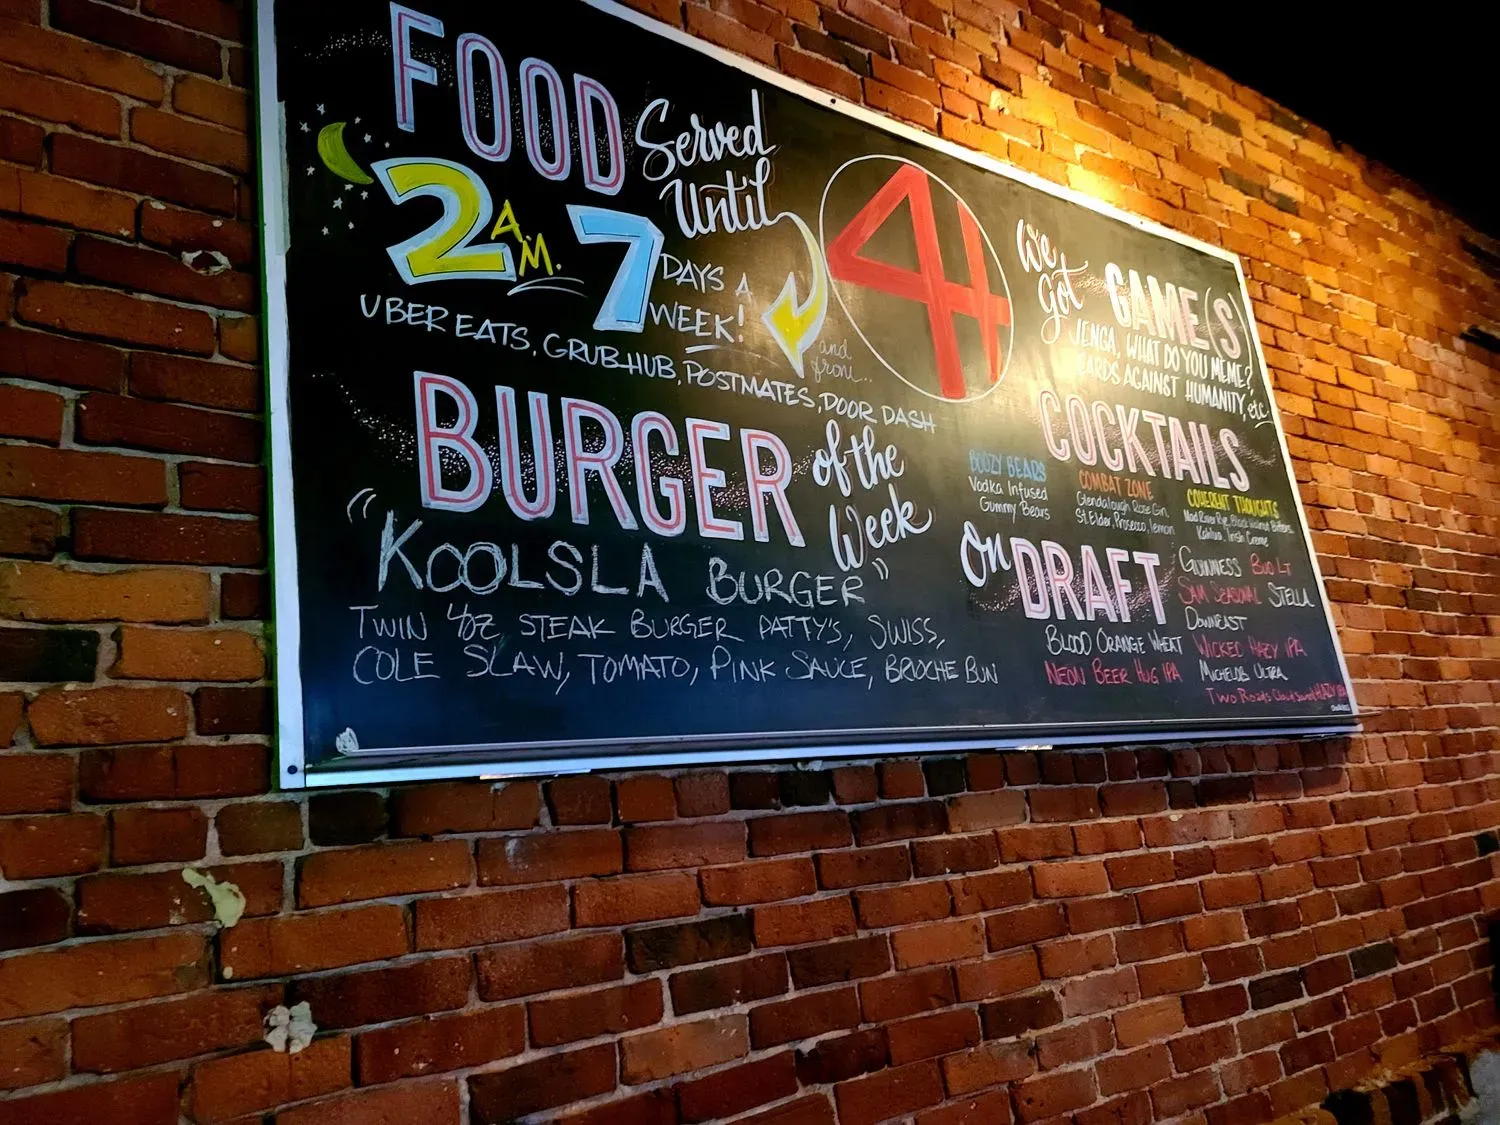 FOOD Served
Until
2 A.M. 7 DAYS A
WEEK!
UBER EATS, GRUBHUB, POSTMATES, DOOR DASH
and
from...
4
BURGER of the
Week
"KOOLSLA BURGER"
TWIN 4oz STEAK BURGER PATTY'S, SWISS,
COLE SLAW, TOMATO, PINK SAUCE, BRIOCHE BUN
We
Got GAME(S)
JENGA, WHAT DO YOU MEME?
CARDS AGAINST HUMANITY, etc
COCKTAILS
BOOZY BEARS
Vodka Infused
Gummy Bears
COMBAT ZONE
Glendalough Rose Gin,
St. Elder, Prosecco, lemon
COHERENT THOUGHTS
Mad River Rye, Black Walnut Bitters,
Kahlua, Irish Creme
On DRAFT
BLOOD ORANGE WHEAT
NEON BEER HUG IPA
GUINNESS BUD LT
SAM SEASONAL STELLA
DOWNEAST
WICKED HAZY IPA
MICHELOB ULTRA
TWO Roads HAZY